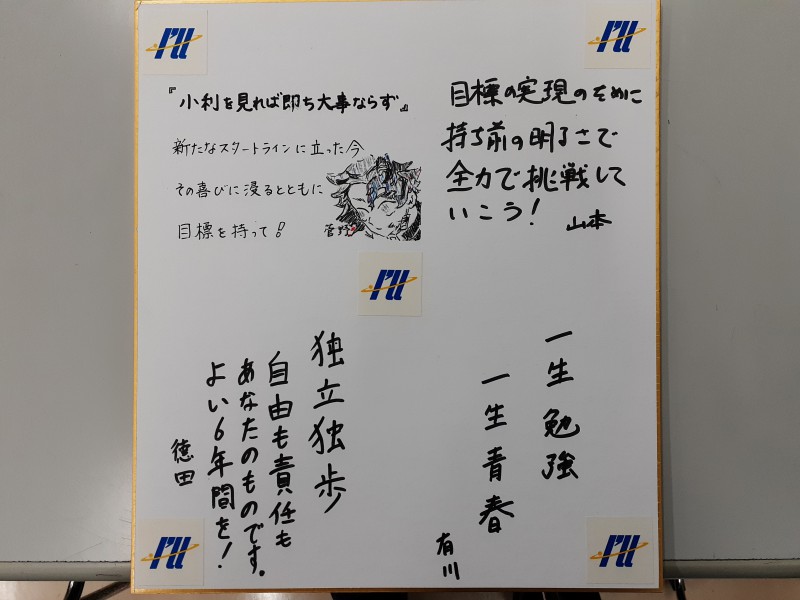 『小利を見れば即ち大事ならず』
新たなスタートラインに立った今
その喜びに浸るとともに
目標を持って!
菅野
目標の実現のために
持ち前の明るさで
全力で挑戦して
いこう!
山本
独立独歩
自由も責任も
あなたのものです。
よい6年間を!
徳田
一生勉強
一生青春
有川